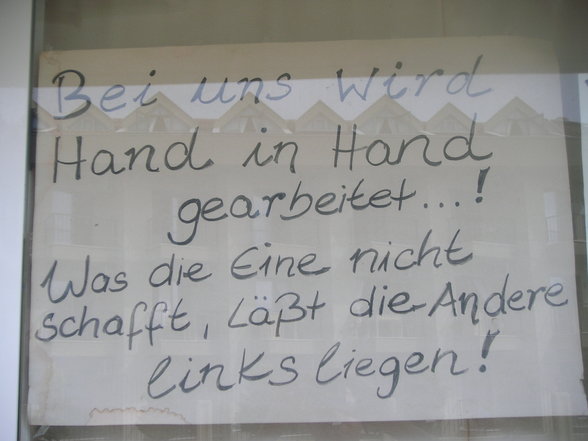 Bei uns wird
Hand in Hand
gearbeitet...!
Was die Eine nicht
schafft, Läßt die Andere
links liegen!